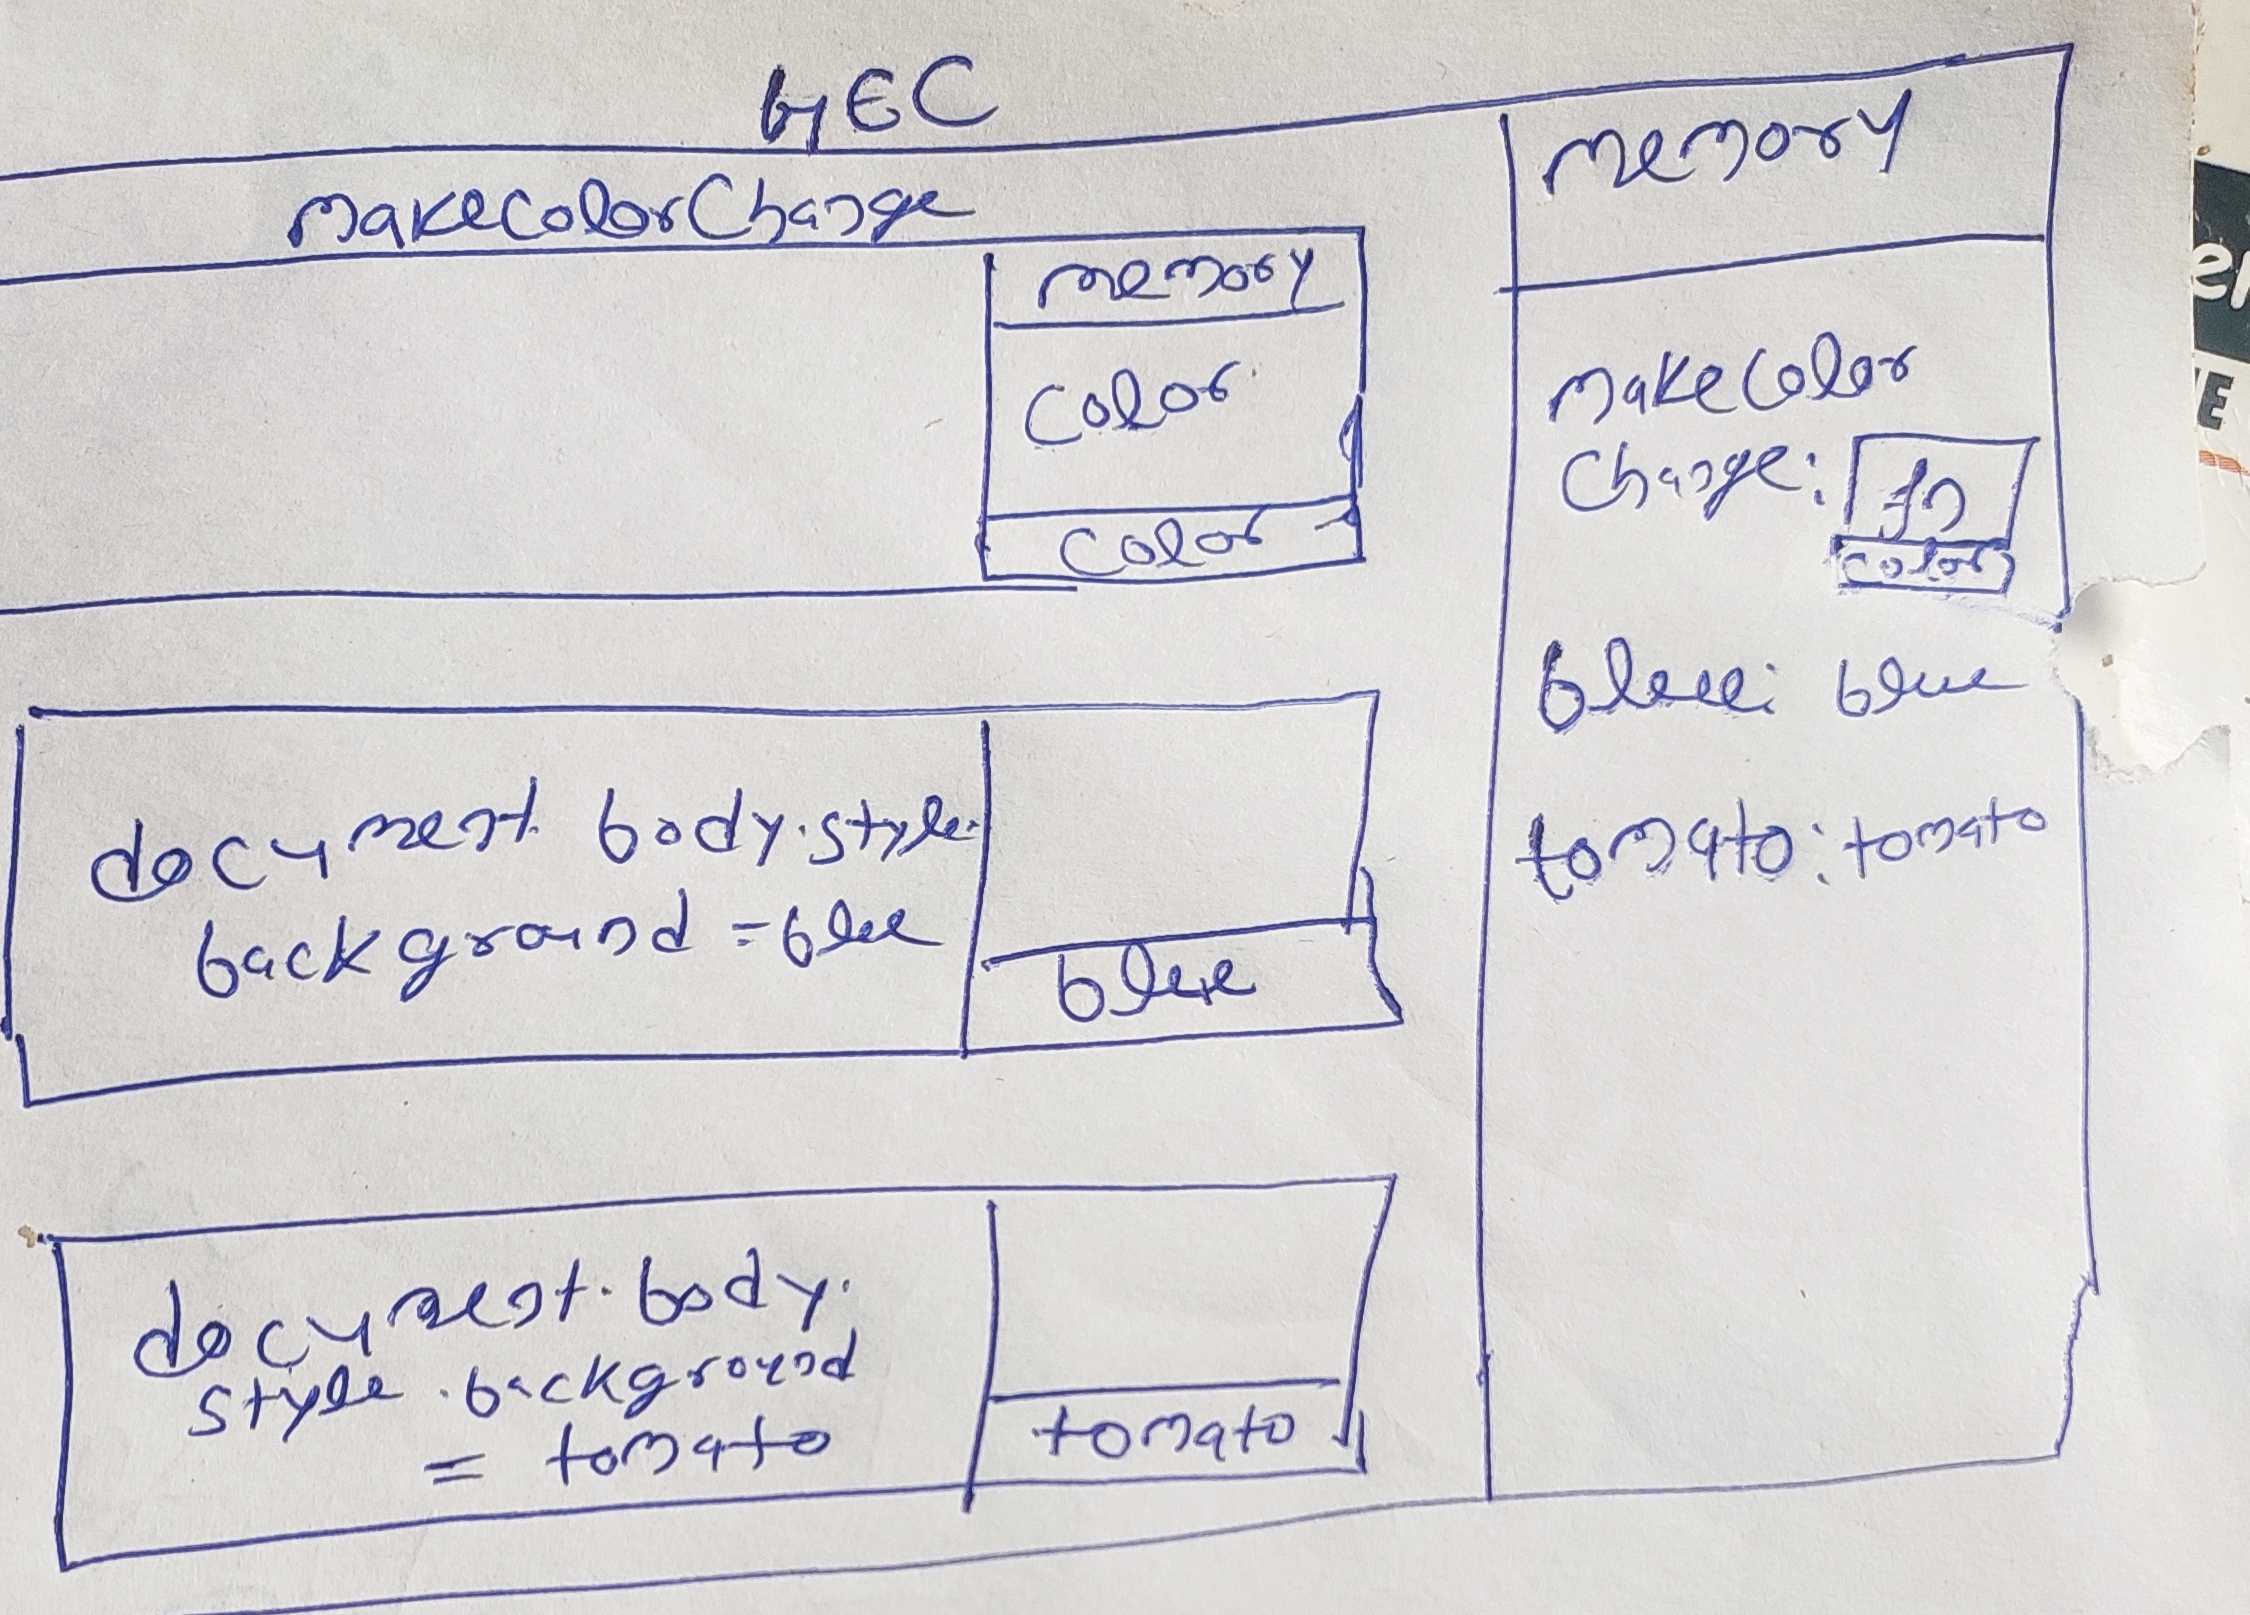 GEC
makecolorChange
memory
color
color
document. body.style.
background = blue
blue
document.body.
style.background
= tomato
tomato
memory
makecolor
change: fn
color
blue: blue
tomato: tomato
er
E